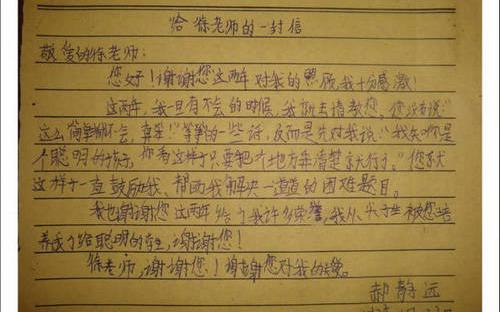 给徐老师的一封信
敬爱的徐老师：
您好！谢谢您这两年对我的照顾，我十分感激！
这两年，我一旦有不会的时候，我就去请教您。您没有说：“
这么简单都不会，真笨！”等等的一些话，反而是先对我说：“我知你是
个聪明的孩子，你看这样子只要把个地方弄清楚就行了。”您就
这样子一直鼓励我、帮助我解决一道道的困难题目。
我也谢谢您这两年给了我许多荣誉，我从 被您培
养成了 聪明的 ，谢谢您！
徐老师，谢谢您！谢谢您对我的关爱。
郝静远